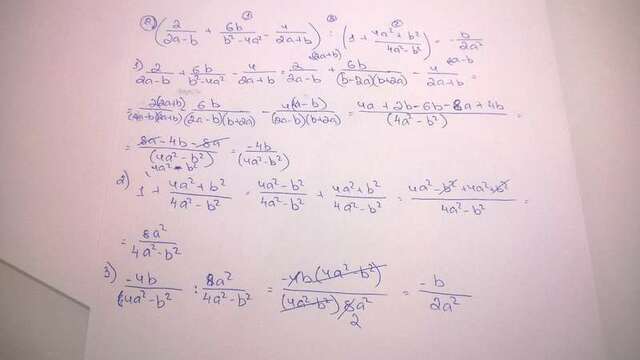 8) (2/(2a-b) + 6b/(b²-4a²) - 4/(2a+b)) : (1 + (4a²+b²)/(4a²-b²)) = -b/2a²
1) 2/(2a-b) + 6b/(b²-4a²) - 4/(2a+b) = 2/(2a-b) + 6b/((b-2a)(b+2a)) - 4/(2a+b) =
= 2(2a+b)/((2a-b)(2a+b)) 6b/((2a-b)(b+2a)) - 4(a-b)/((2a-b)(b+2a)) = (4a+2b-6b-8a+4b)/(4a²-b²) =
= (8a-4b-8a)/(4a²-b²) = -4b/(4a²-b²)
2) 1 + (4a²+b²)/(4a²-b²) = (4a²-b²)/(4a²-b²) + (4a²+b²)/(4a²-b²) = (4a²-b²+4a²+b²)/(4a²-b²) =
= 8a²/(4a²-b²)
3) -4b/(4a²-b²) : 8a²/(4a²-b²) = -4b(4a²-b²)/((4a²-b²)8a²) = -b/2a²
2